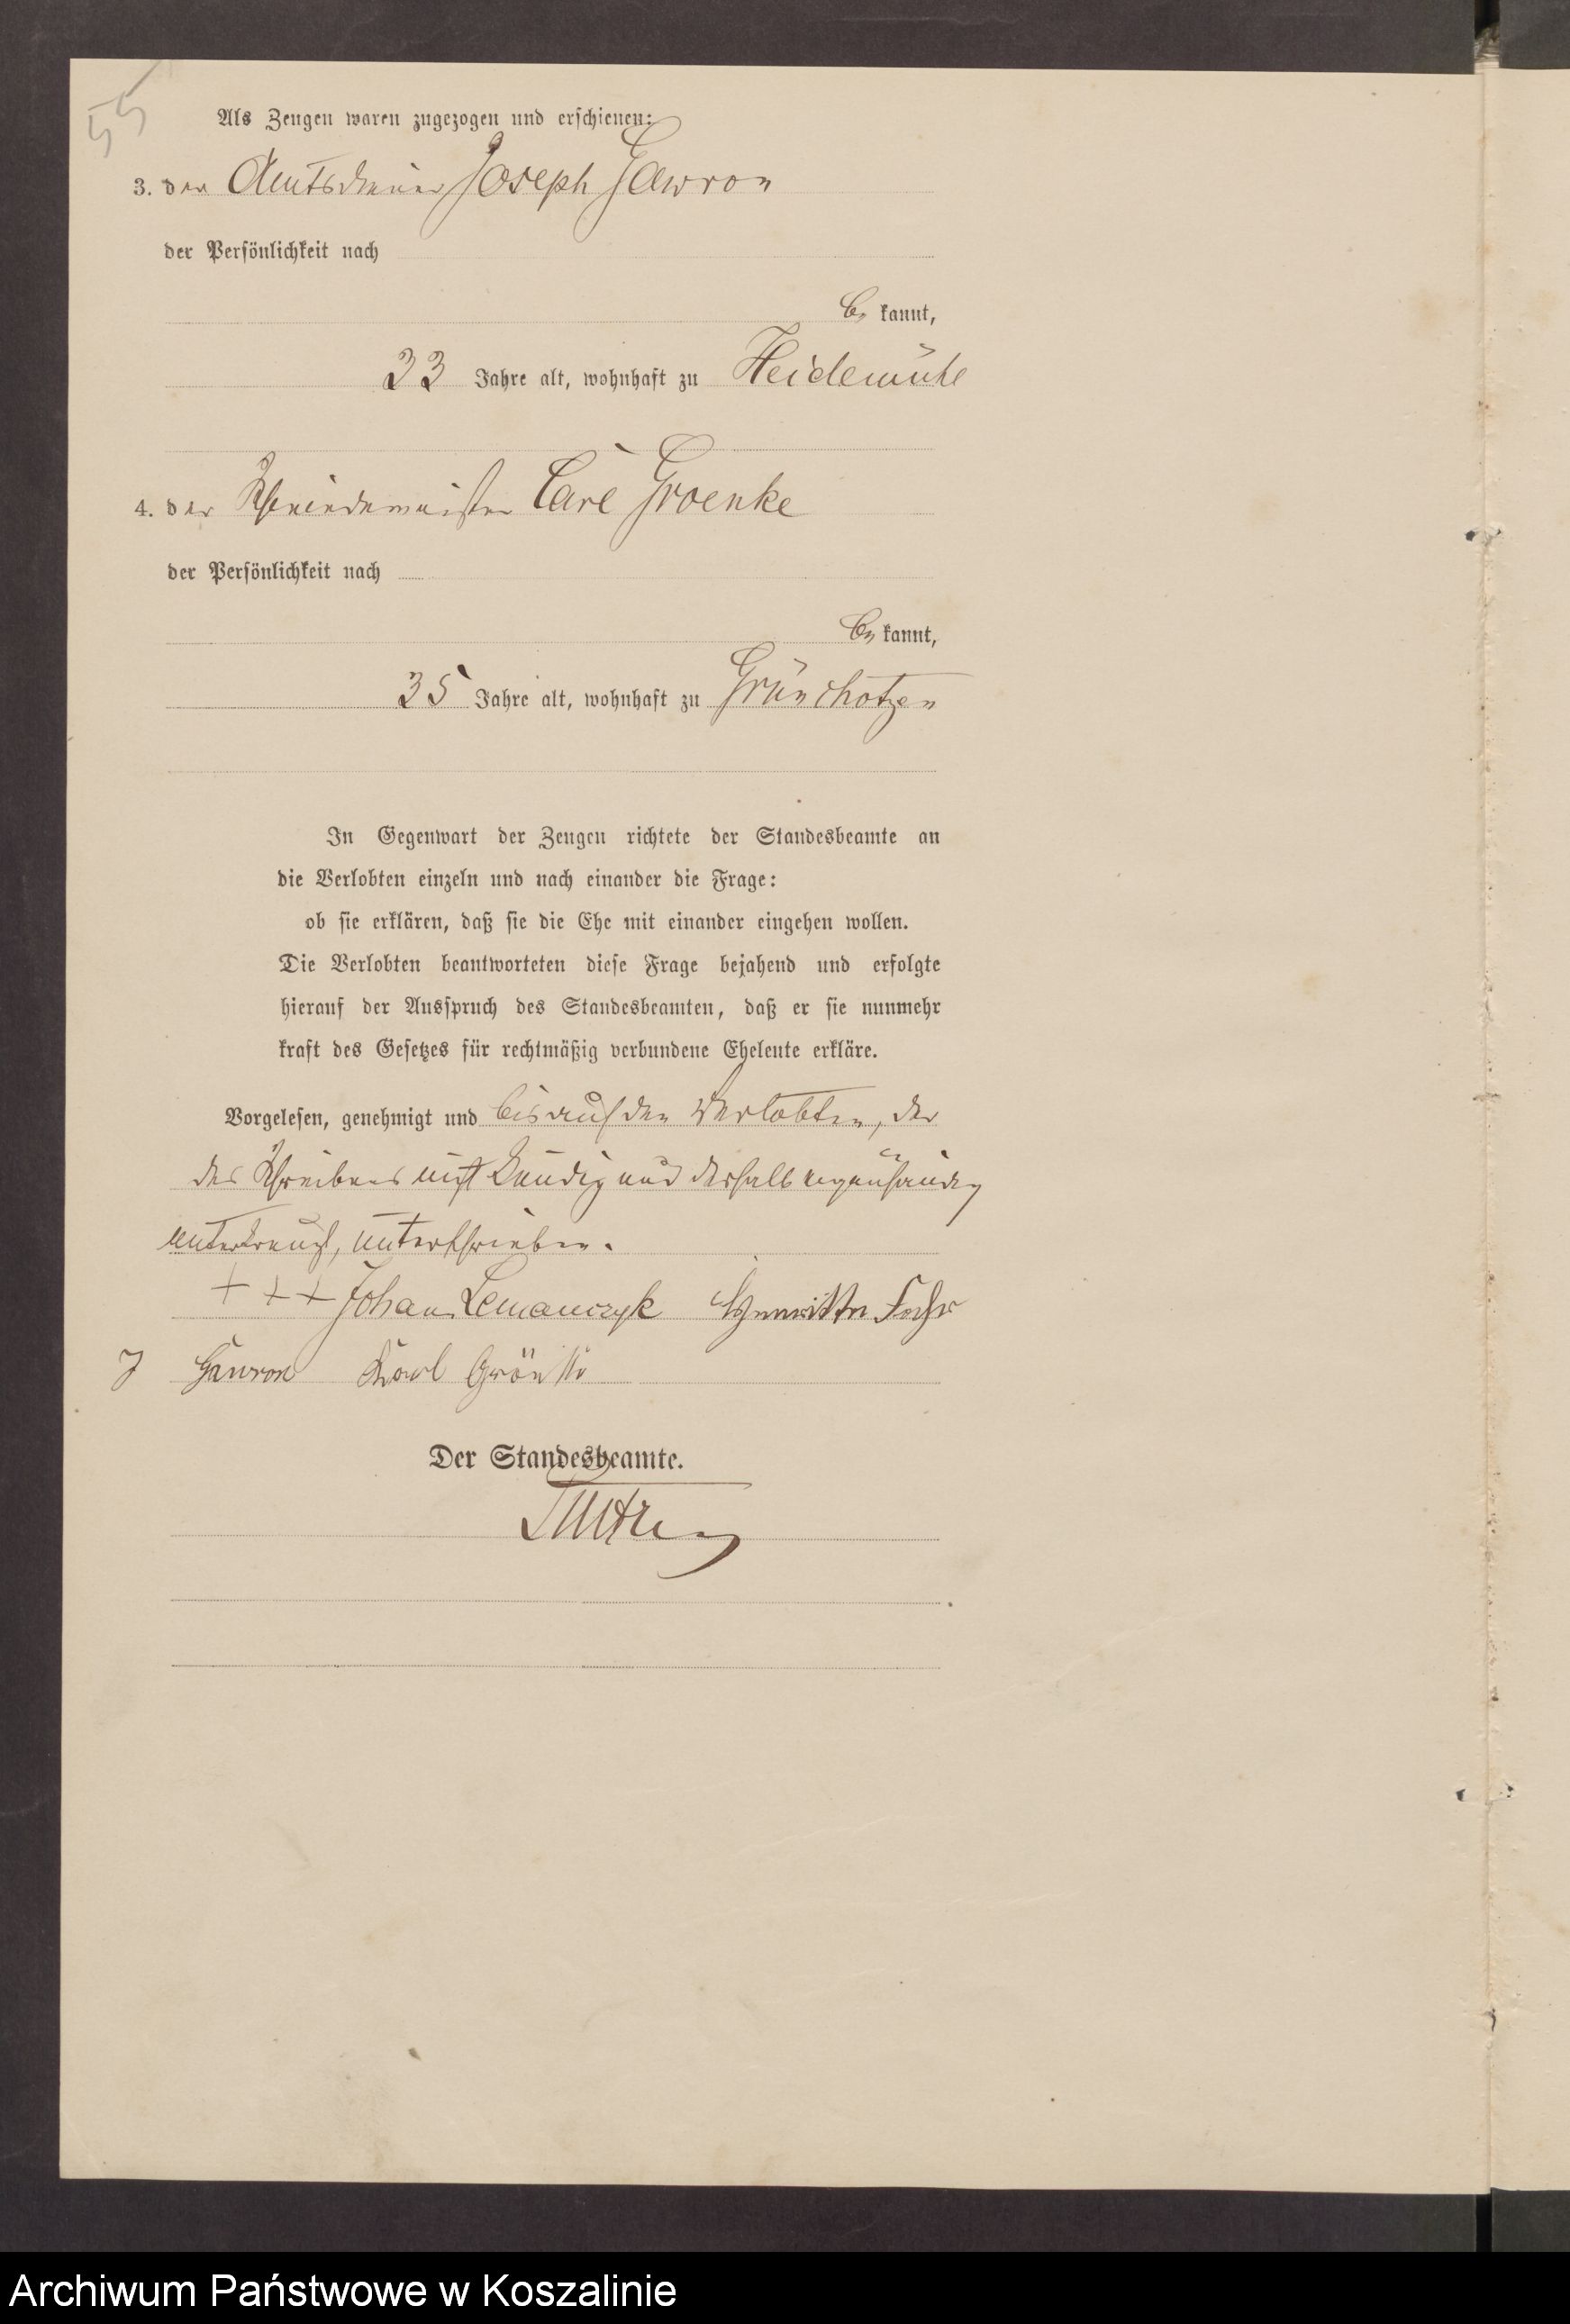 55
Als Zeugen waren zugezogen und erschienen:
3. der Amtsdiener Joseph Gawron
der Persönlichkeit nach
be kannt,
33 Jahre alt, wohnhaft zu Heidemühl
4. der Schneidermeister Carl Groenke
der Persönlichkeit nach
be kannt,
35 Jahre alt, wohnhaft zu Grünchotzen
In Gegenwart der Zeugen richtete der Standesbeamte an
die Verlobten einzeln und nach einander die Frage:
ob sie erklären, daß sie die Ehe mit einander eingehen wollen.
Die Verlobten beantworteten diese Frage bejahend und erfolgte
hierauf der Ausspruch des Standesbeamten, daß er sie nunmehr
kraft des Gesetzes für rechtmäßig verbundene Eheleute erkläre.
Vorgelesen, genehmigt und bis auf den Verlobten, der
des Schreibens nicht kundig und deshalb eigenhändig
unterkreuzt, unterschrieben.
+ + + Johann Lemanczyk Henriette Fehr
J Gawron Karl Grönke
Der Standesbeamte.
Archiwum Państwowe w Koszalinie